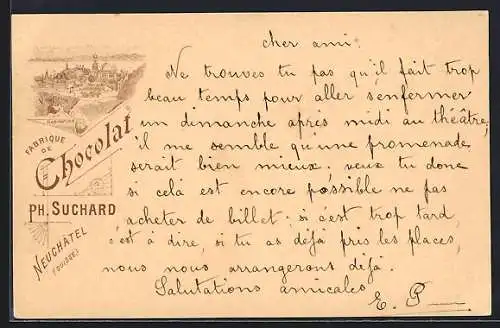 cher ami.
Ne trouves tu pas qu'il fait trop
beau temps pour aller s'enfermer
un dimanche après midi au théâtre,
il me semble qu'une promenade
serait bien mieux. veux tu donc
si celà est encore possible ne pas
acheter de billet; si c'est trop tard
c'est à dire, si tu as déjà pris les places,
nous nous arrangerons déjà.
Salutations amicales
E. P
FABRIQUE
DE
Chocolat
PH. SUCHARD
NEUCHATEL
(SUISSE)